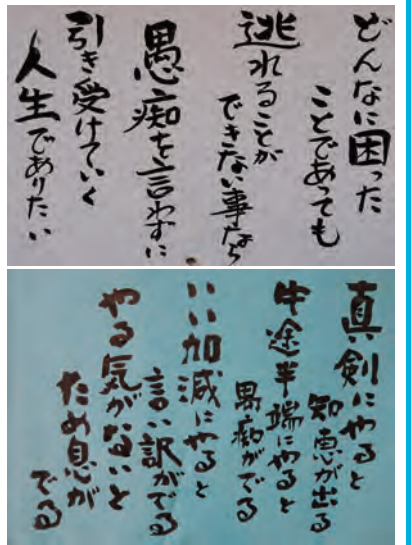 どんなに困った
ことであっても
逃れることが
できない事なら
愚痴を言わずに
引き受けていく
人生でありたい
真剣にやると
知恵が出る
中途半端にやると
愚痴がでる
いい加減にやると
言い訳がでる
やる気がないと
ため息が
でる